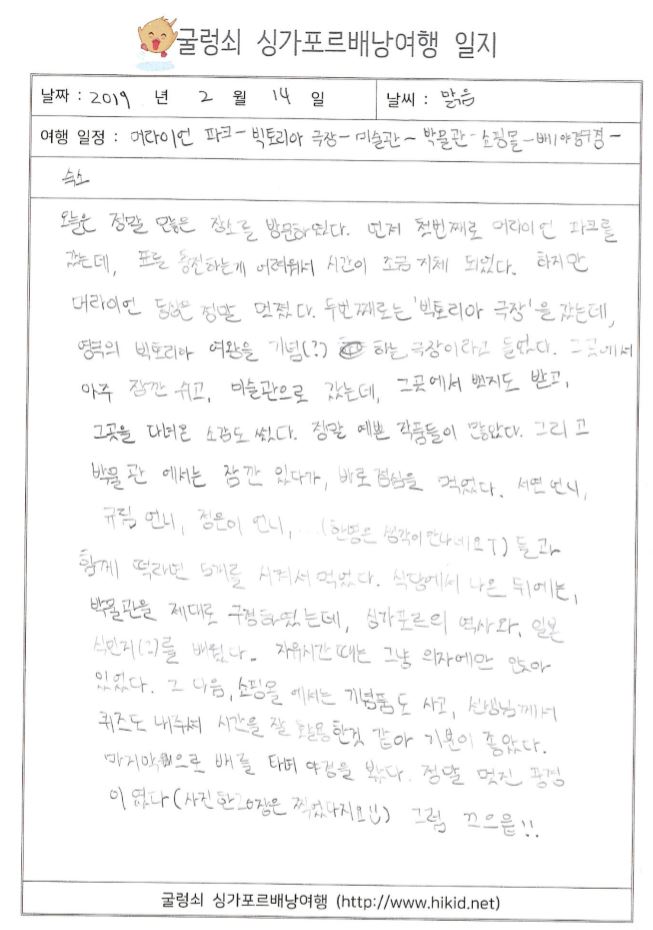 굴렁쇠 싱가포르배낭여행 일지
날짜 : 2019 년 2 월 14 일 날씨 : 맑음
여행 일정 : 머라이언 파크 - 빅토리아 극장 - 미술관 - 박물관 - 쇼핑몰 - 배 야경구경 -
숙소
오늘은 정말 많은 장소를 방문하였다. 먼저 첫번째로 머라이언 파크를
갔는데, 표를 충전하는게 어려워서 시간이 조금 지체 되었다. 하지만
머라이언 동상은 정말 멋졌다. 두번째로는 '빅토리아 극장'을 갔는데,
영국의 빅토리아 여왕을 기념(?) 하는 극장이라고 들었다. 그곳에서
아주 잠깐 쉬고, 미술관으로 갔는데, 그곳에서 뱃지도 받고,
그곳을 다녀온 소감도 썼다. 정말 예쁜 작품들이 많았다. 그리고
박물관 에서는 잠깐 있다가, 바로 점심을 먹었다. 서연 언니,
규림 언니, 정은이 언니, ... (한명은 생각이 안나네요ㅜ) 들과
함께 떡라면 5개를 시켜서 먹었다. 식당에서 나온 뒤에는,
박물관을 제대로 구경하였는데, 싱가포르의 역사와, 일본
식민지(?)를 배웠다. 자유시간 때는 그냥 의자에만 앉아
있었다. 그 다음, 쇼핑몰 에서는 기념품도 사고, 선생님께서
퀴즈도 내주셔서 시간을 잘 활용한것 같아 기분이 좋았다.
마지막으로 배를 타며 야경을 봤다. 정말 멋진 풍경
이였다 (사진 한 20장은 찍었다지요!!) 그럼 끄으읕!!
굴렁쇠 싱가포르배낭여행 (http://www.hikid.net)